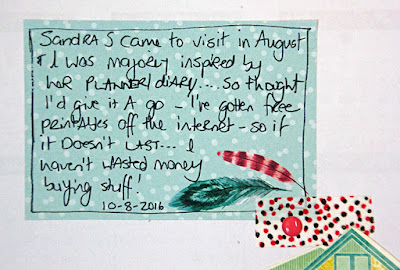 SANDRA S CAME TO VISIT IN AUGUST
& I WAS majorly inspired by
her PLANNER/DIARY.... So thought
I'd give it A go - I've gotten free
printables off the internet - so if
it Doesn't LAST... I
haven't WASTED money
buying stuff!
10-8-2016